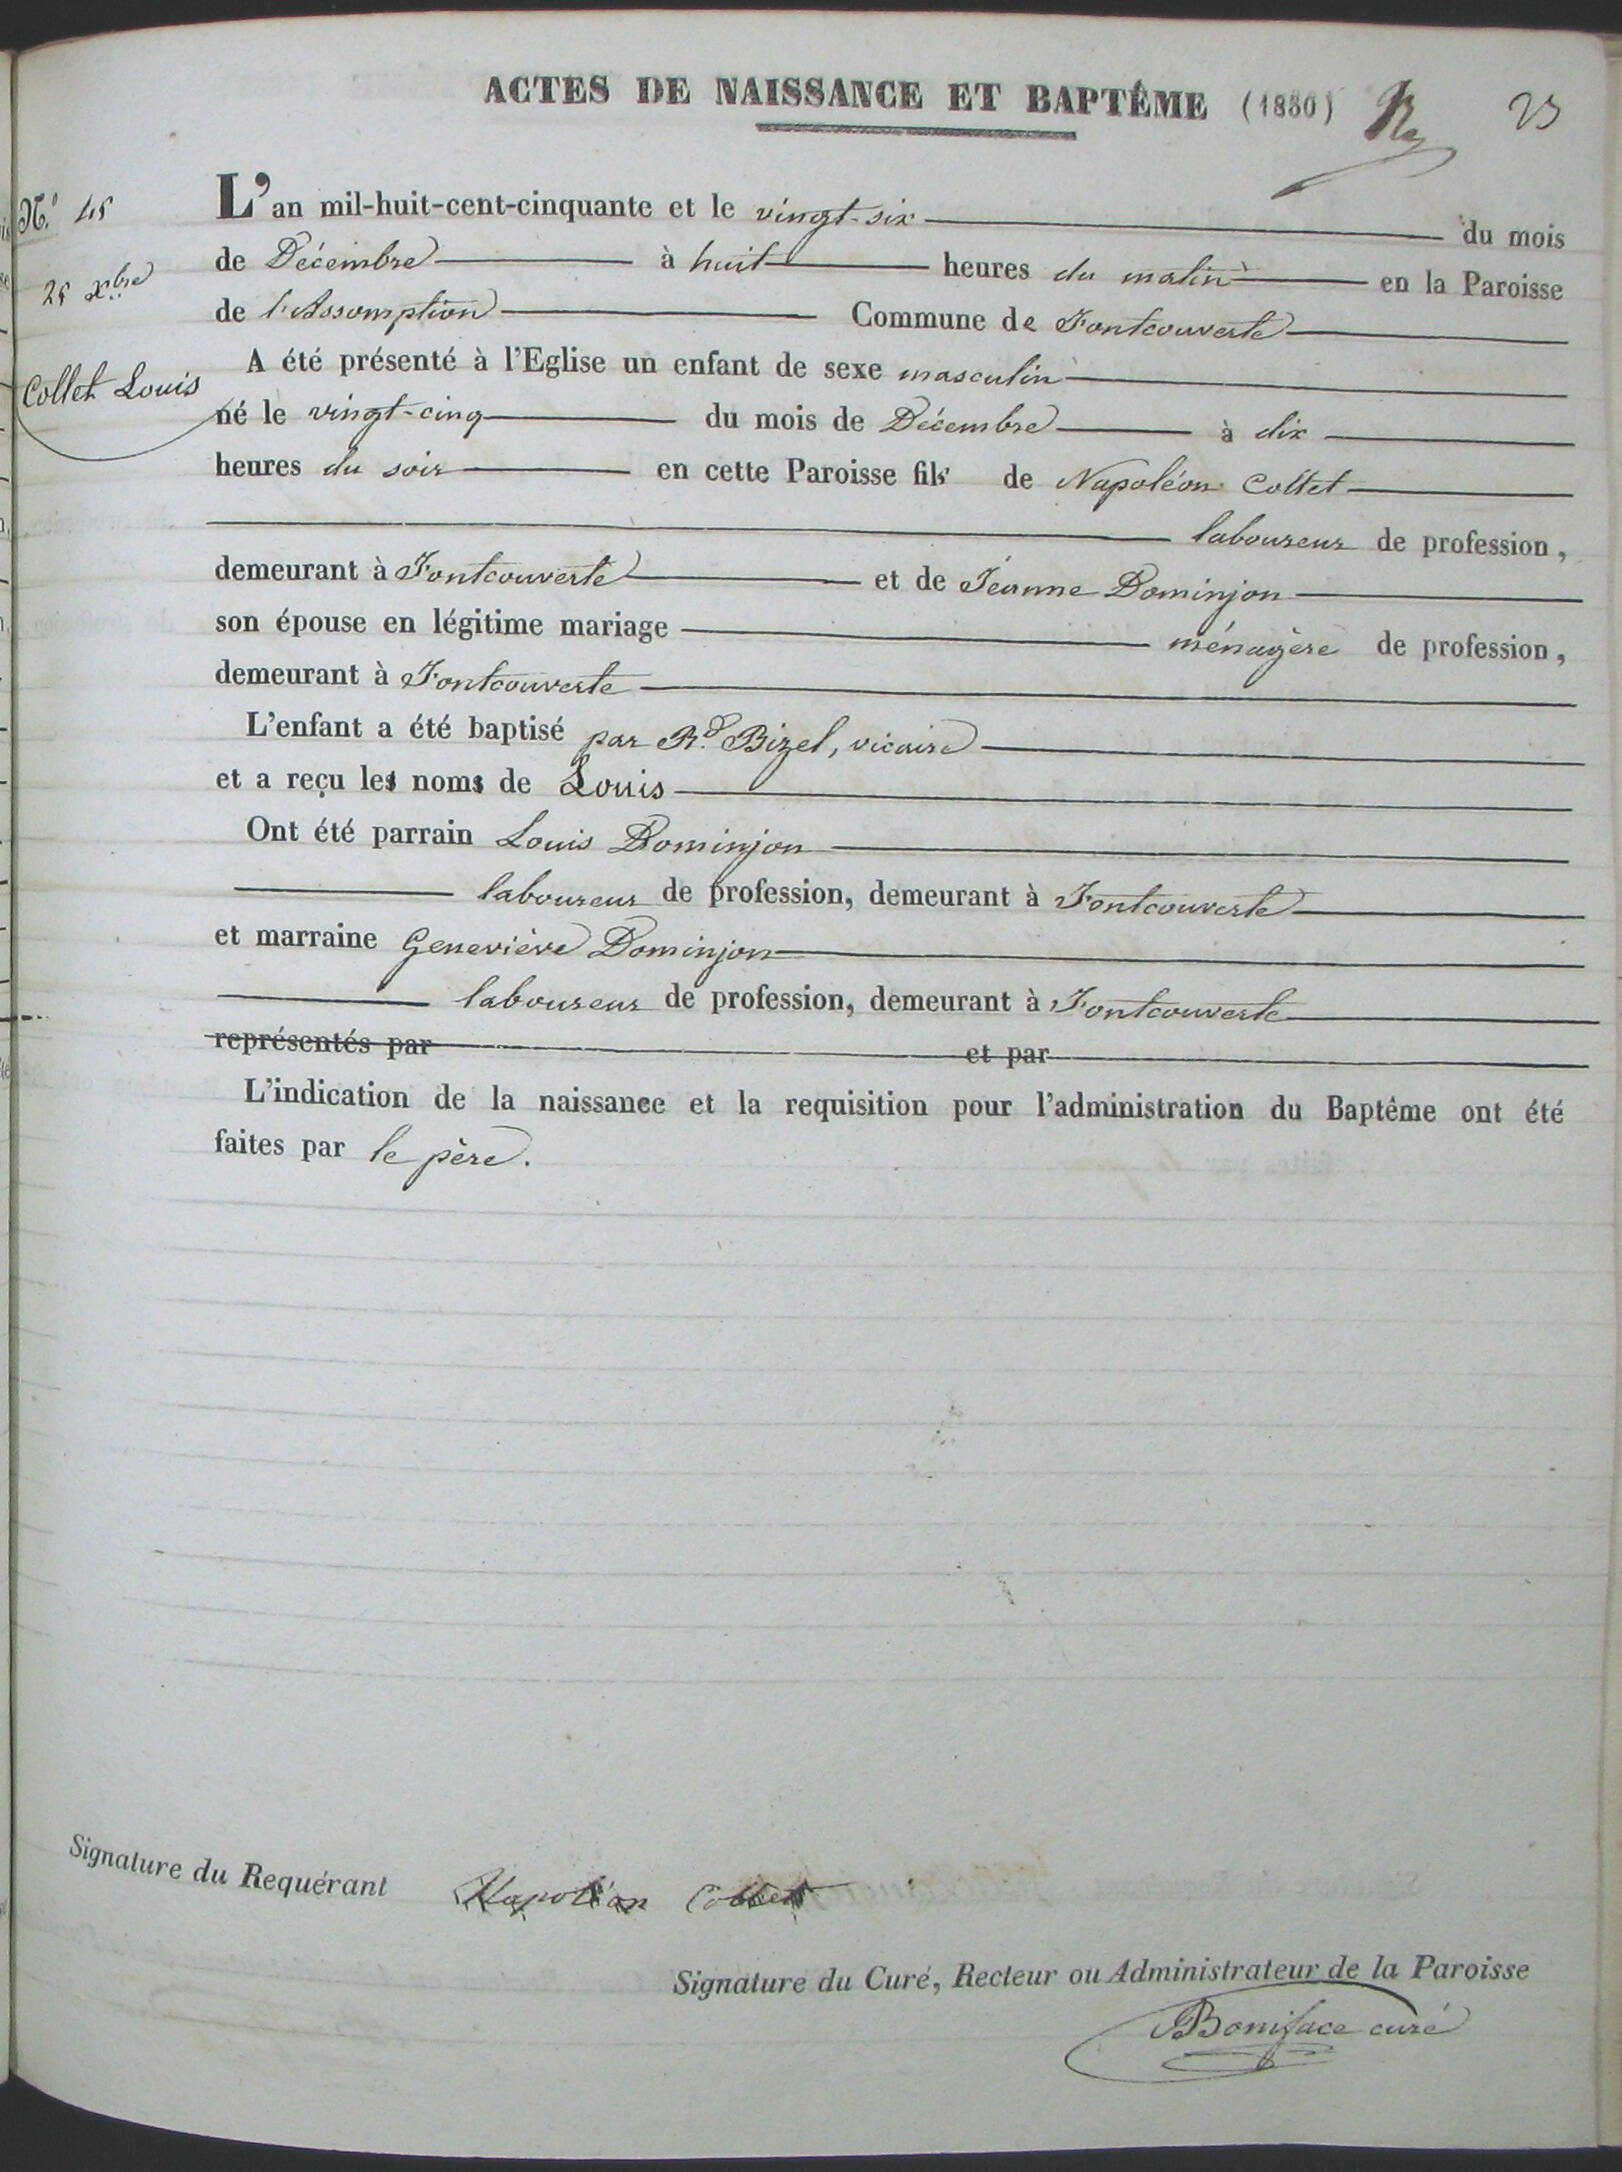 ACTES DE NAISSANCE ET BAPTÊME (1850)
23
N.° 45
25 Xbre
Collet Louis
L'an mil-huit-cent-cinquante et le vingt-six du mois
de Décembre à huit heures du matin en la Paroisse
de l'Assomption Commune de Fontcouverte
A été présenté à l'Eglise un enfant de sexe masculin
né le vingt-cinq du mois de Décembre à dix
heures du soir en cette Paroisse fils de Napoléon Collet
laboureur de profession,
demeurant à Fontcouverte et de Jéanne Dominjon
son épouse en légitime mariage ménagère de profession,
demeurant à Fontcouverte
L'enfant a été baptisé par Rd Bizel, vicaire
et a reçu les noms de Louis
Ont été parrain Louis Dominjon
laboureur de profession, demeurant à Fontcouverte
et marraine Geneviève Dominjon
laboureur de profession, demeurant à Fontcouverte
représentés par et par
L'indication de la naissance et la requisition pour l'administration du Baptême ont été
faites par le père.
Signature du Requérant Napoléon Collet
Signature du Curé, Recteur ou Administrateur de la Paroisse
Boniface curé